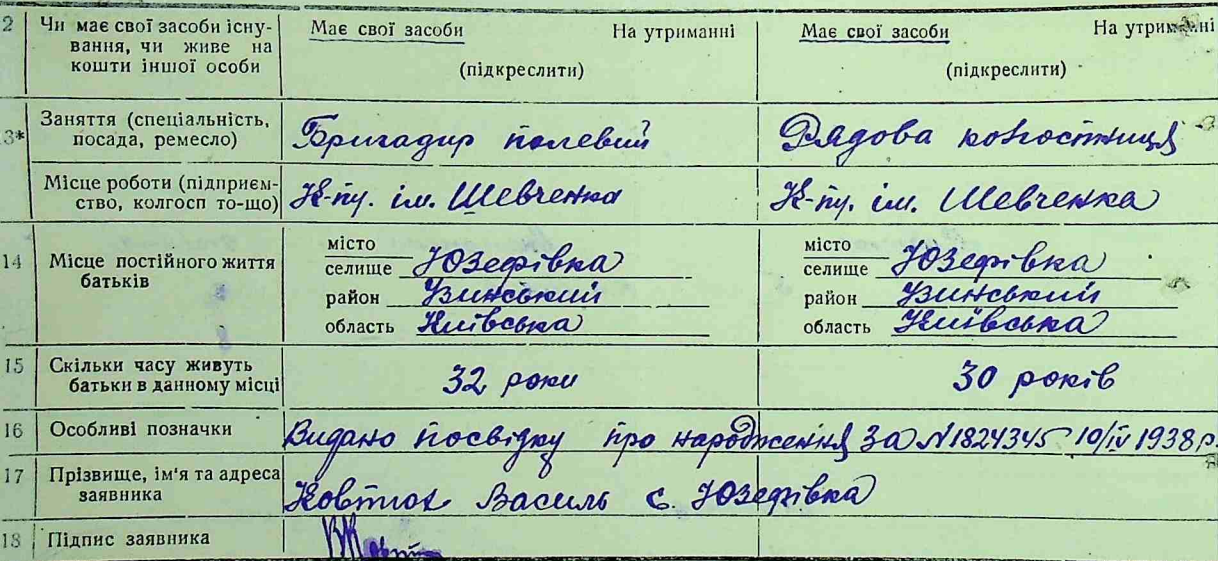 2 Чи має свої засоби існування, чи живе на кошти іншої особи Має свої засоби На утриманні (підкреслити) Має свої засоби На утриманні (підкреслити)
13* Заняття (спеціальність, посада, ремесло) Бригадир полевий Рядова колгоспниця
Місце роботи (підприємство, колгосп то-що) К-пу. ім. Шевченка К-пу. ім. Шевченка
14 Місце постійного життя батьків
місто
селище Юзефівка
район Узинський
область Київська
місто
селище Юзефівка
район Узинський
область Київська
15 Скільки часу живуть батьки в данному місці 32 роки 30 років
16 Особливі позначки Видано посвідку про народження за №1824345 10/IV 1938 р.
17 Прізвище, ім'я та адреса заявника Ковтюх Василь с. Юзефівка
18 Підпис заявника